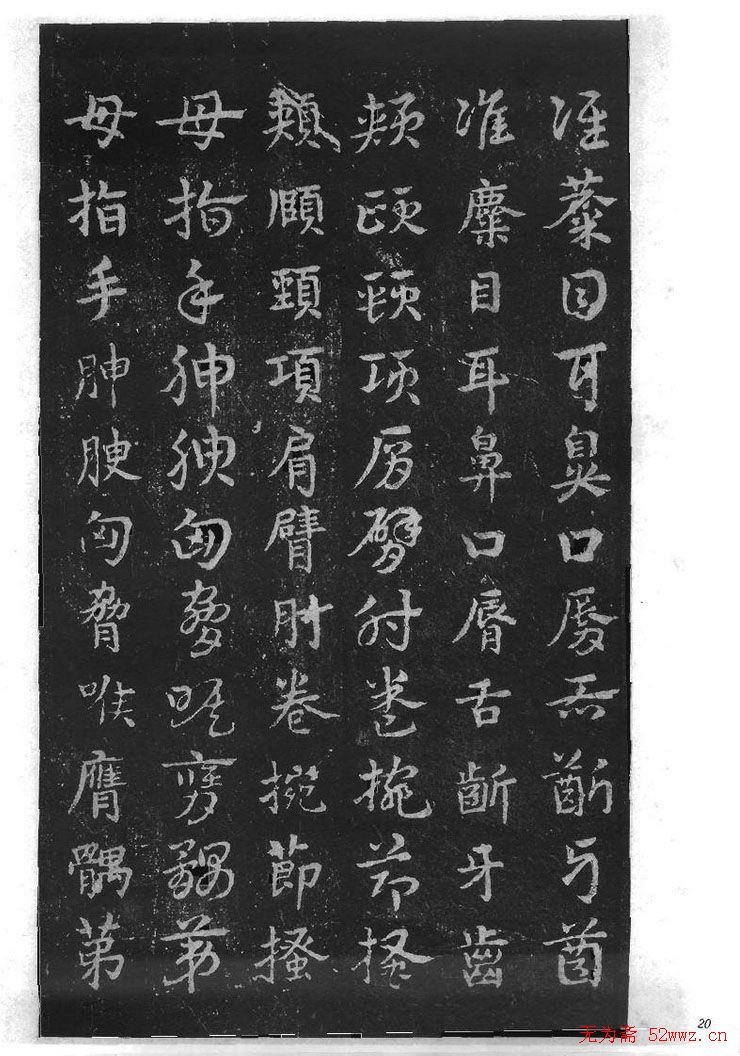 准蘪目耳鼻口脣舌齗牙齒
准麋目耳鼻口脣舌齗牙齒
頰頤頸項肩臂肘卷捥節搔
頰頤頸項肩臂肘卷捥節搔
母指手胂腴匈脅喉膺髃第
母指手胂腴匈脅喉膺髃第
20
无为斋 52wwz.cn